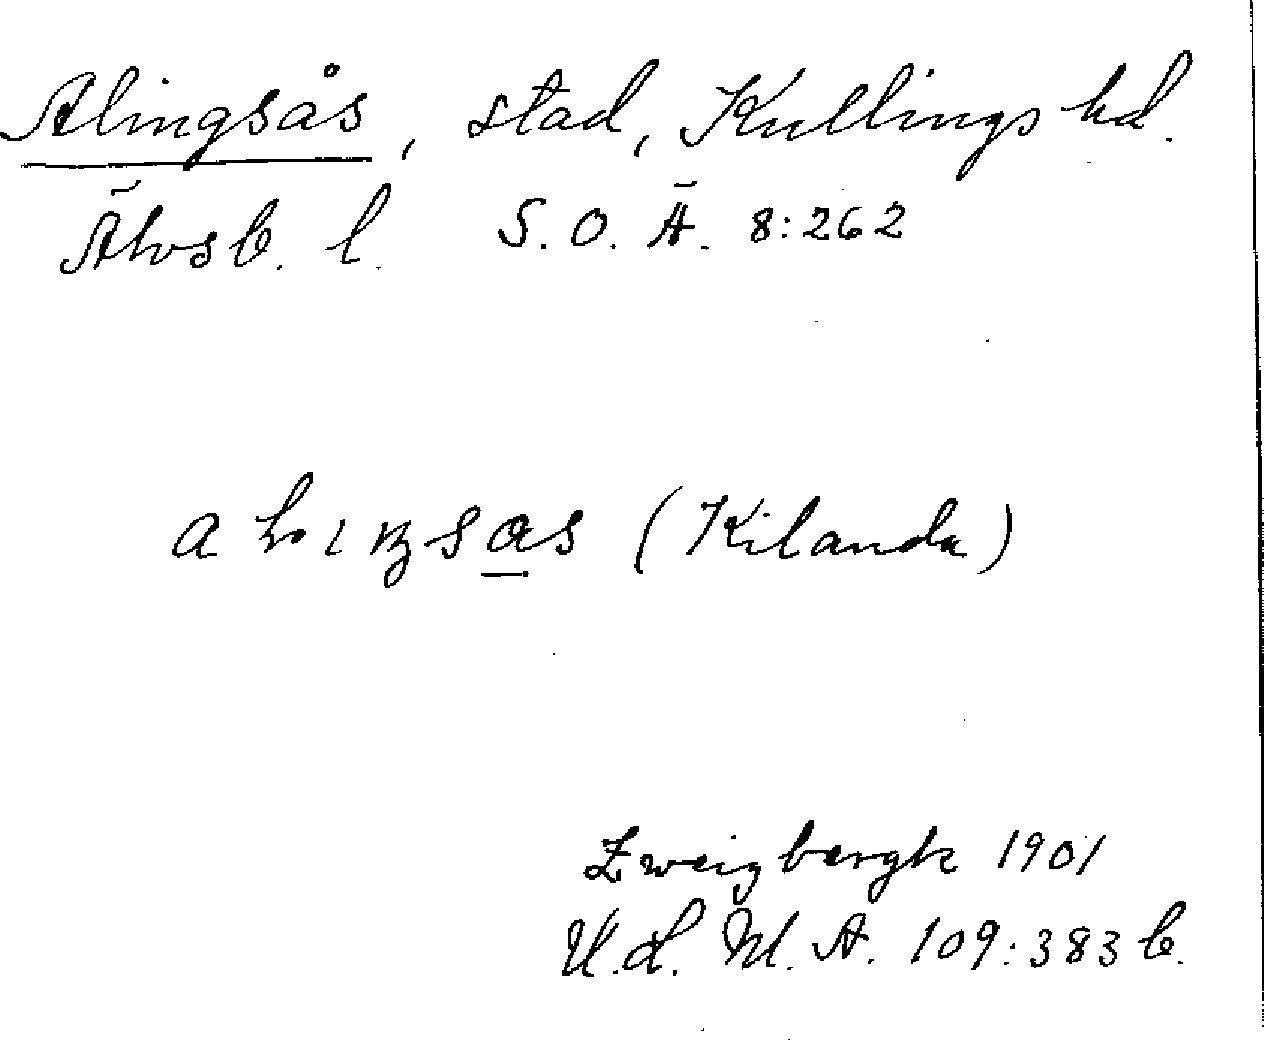 Alingsås, stad, Kullings hd.
Älvsb. l. S. O. Ä. 8:262
(Kilanda)
Zweigbergk 1901
U.d. M. A. 109:383 b.